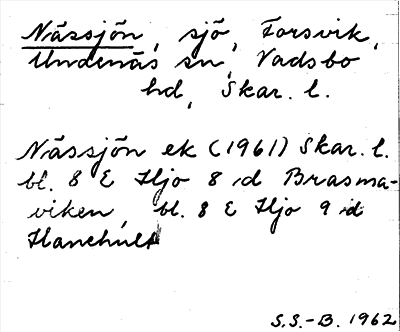 Nässjön, sjö, Forsvik,
Undenäs sn, Vadsbo
hd, Skar. l.
Nässjön ek (1961) Skar. l.
bl. 8 E Hjo 8 d Brasma-
viken, bl. 8 E Hjo 9 d
Hanehult
S.S.-B. 1962